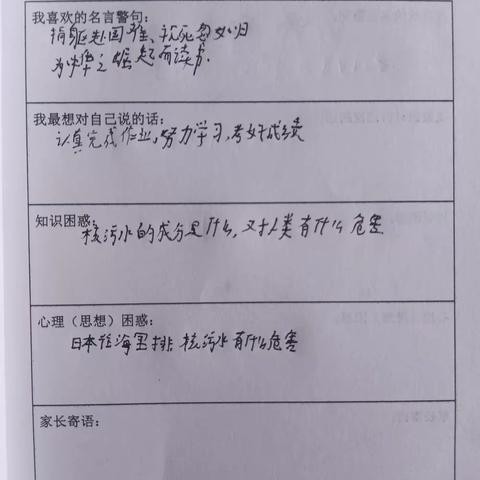 我喜欢的名言警句:
捐躯赴国难、视死忽如归
为中华之崛起而读书.
我最想对自己说的话:
认真完成作业,努力学习,考好成绩
知识困惑:
核污水的成分是什么,对人类有什么危害
心理（思想）困惑:
日本往海里排核污水有什么危害
家长寄语: